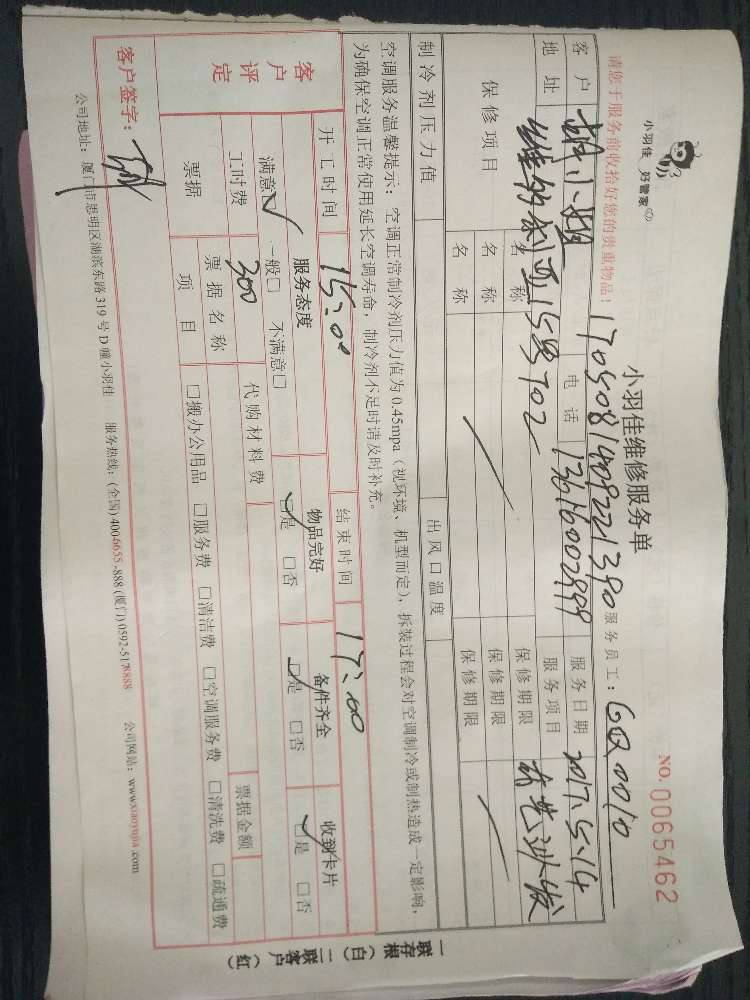 小羽佳 好管家
小羽佳维修服务单
NO. 0065462
请您于服务前收拾好您的贵重物品! 1705081408221390 服务员工: GQ0010
客户 胡小姐 电话 13616002999 服务日期 2017.5.14
地址 维多利亚15号702 服务项目
保修项目 名称 保修期限
名称 保修期限
名称 保修期限
制冷剂压力值 出风口温度
空调服务温馨提示: 空调正常制冷剂压力值为0.45mpa(视环境、机型而定), 拆装过程会对空调制冷或制热造成一定影响,
为确保空调正常使用延长空调寿命, 制冷剂不足时请及时补充。
开工时间 15:00 结束时间 17:00
客户评定 服务态度 物品完好 备件齐全 收到卡片
满意☑ 一般□ 不满意□ ☑是 □否 ☑是 □否 ☑是 □否
工时费 300 代购材料费 票据金额
票据 票据名称
项目 □搬办公用品 □服务费 □清洁费 □空调服务费 □清洗费 □疏通费
客户签字:
公司地址: 厦门市思明区湖滨东路319号D幢小羽佳 服务热线: (全国) 4006655-888 (厦门) 0592-5178888 公司网站: www.xiaoyujia.com
一联存根(白) 二联客户(红)